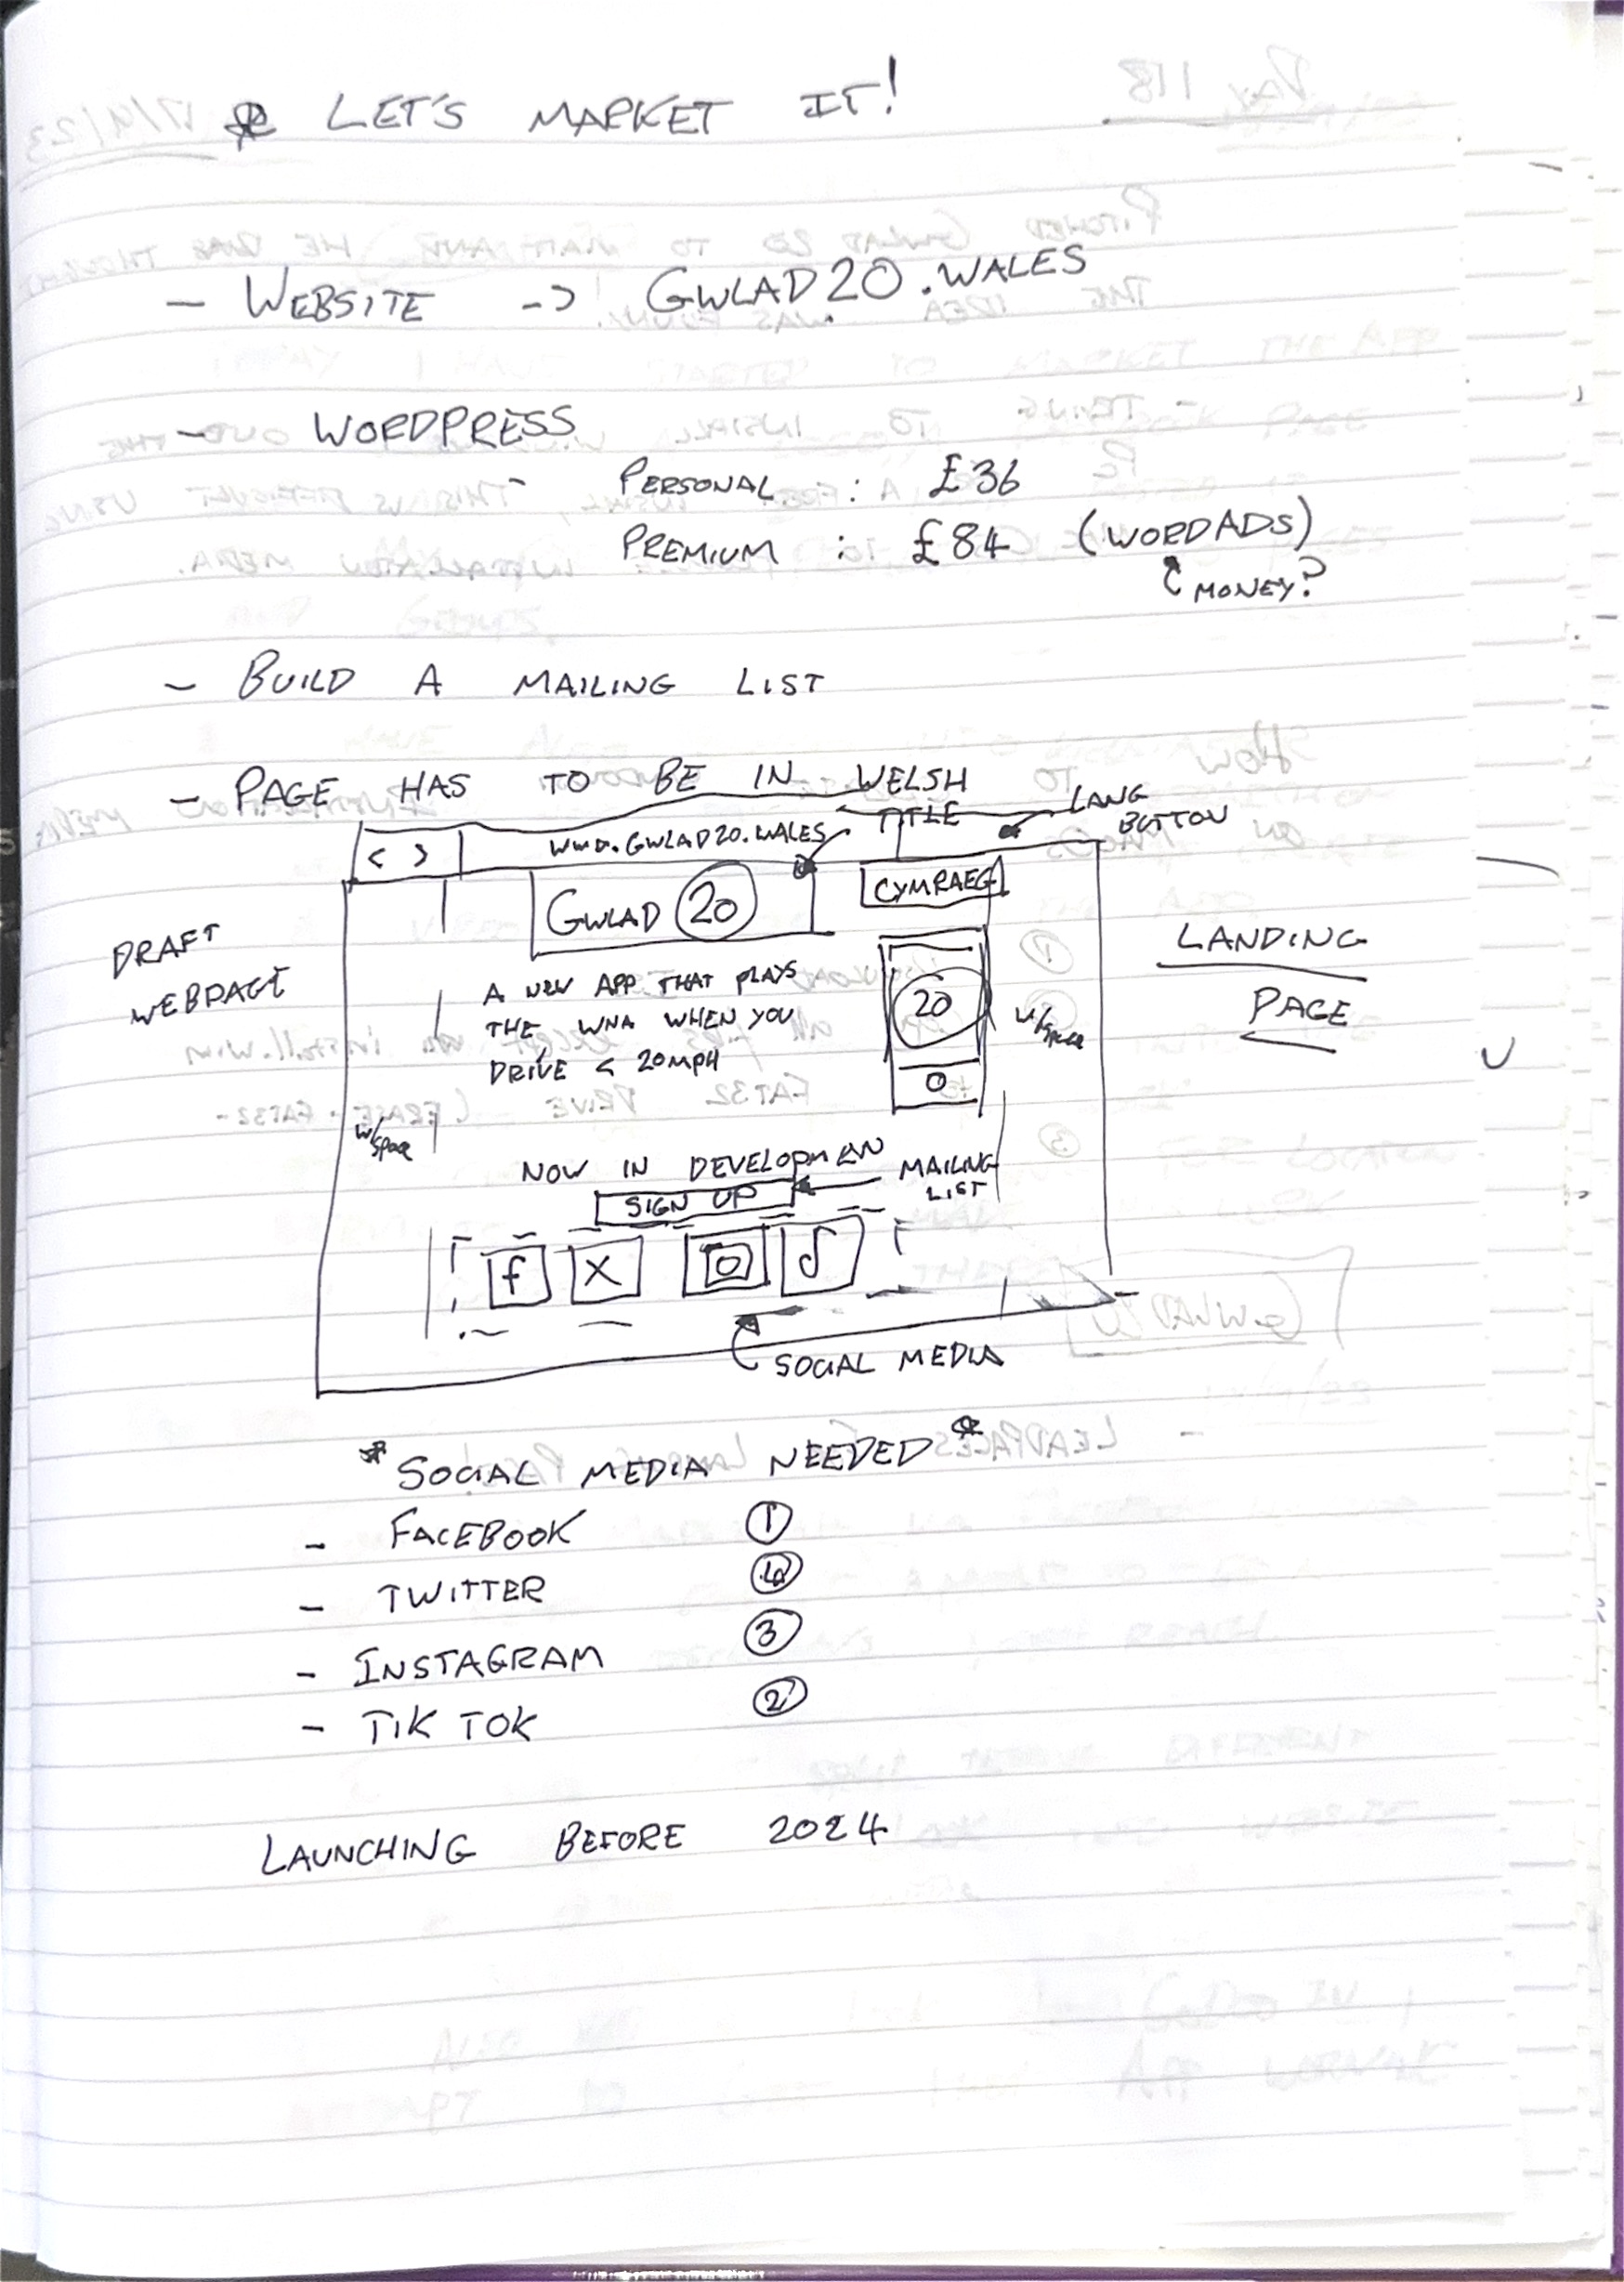 * LET'S MARKET IT!
- WEBSITE -> GWLAD20.WALES
- WORDPRESS
- PERSONAL : £36
PREMIUM : £84 (WORDADS)
MONEY?
- BUILD A MAILING LIST
- PAGE HAS TO BE IN WELSH
TITLE
LANG
BUTTON
< > www.GWLAD20.WALES
GWLAD 20
CYMRAEG
DRAFT
WEBPAGE
LANDING
PAGE
A NEW APP THAT PLAYS
THE WNA WHEN YOU
DRIVE < 20MPH
20
w/space
w/space
NOW IN DEVELOPMEN
SIGN UP
MAILING
LIST
f X
SOCIAL MEDIA
*SOCIAL MEDIA NEEDED*
- FACEBOOK 1
- TWITTER 4
- INSTAGRAM 3
- TIK TOK 2
LAUNCHING BEFORE 2024